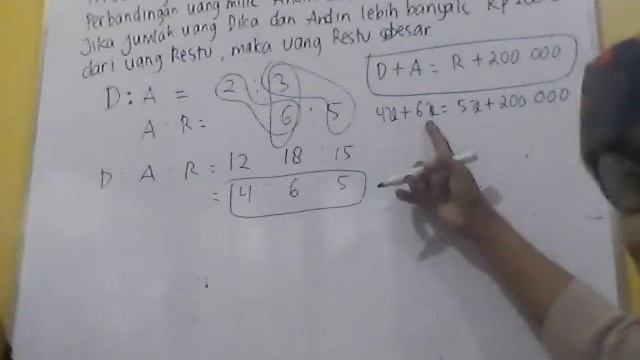 Perbandingan uang milik
Jika jumlah uang Dika dan Andin lebih banyak Rp 200
dari uang Restu, maka uang Restu sebesar
D : A = 2 : 3
A : R = 6 : 5
D : A : R = 12 18 : 15
= 4 6 5
D + A = R + 200 000
4x + 6x = 5x + 200 000